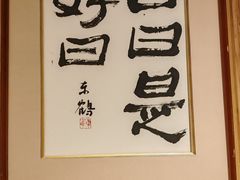 日日是
好日
东鶴